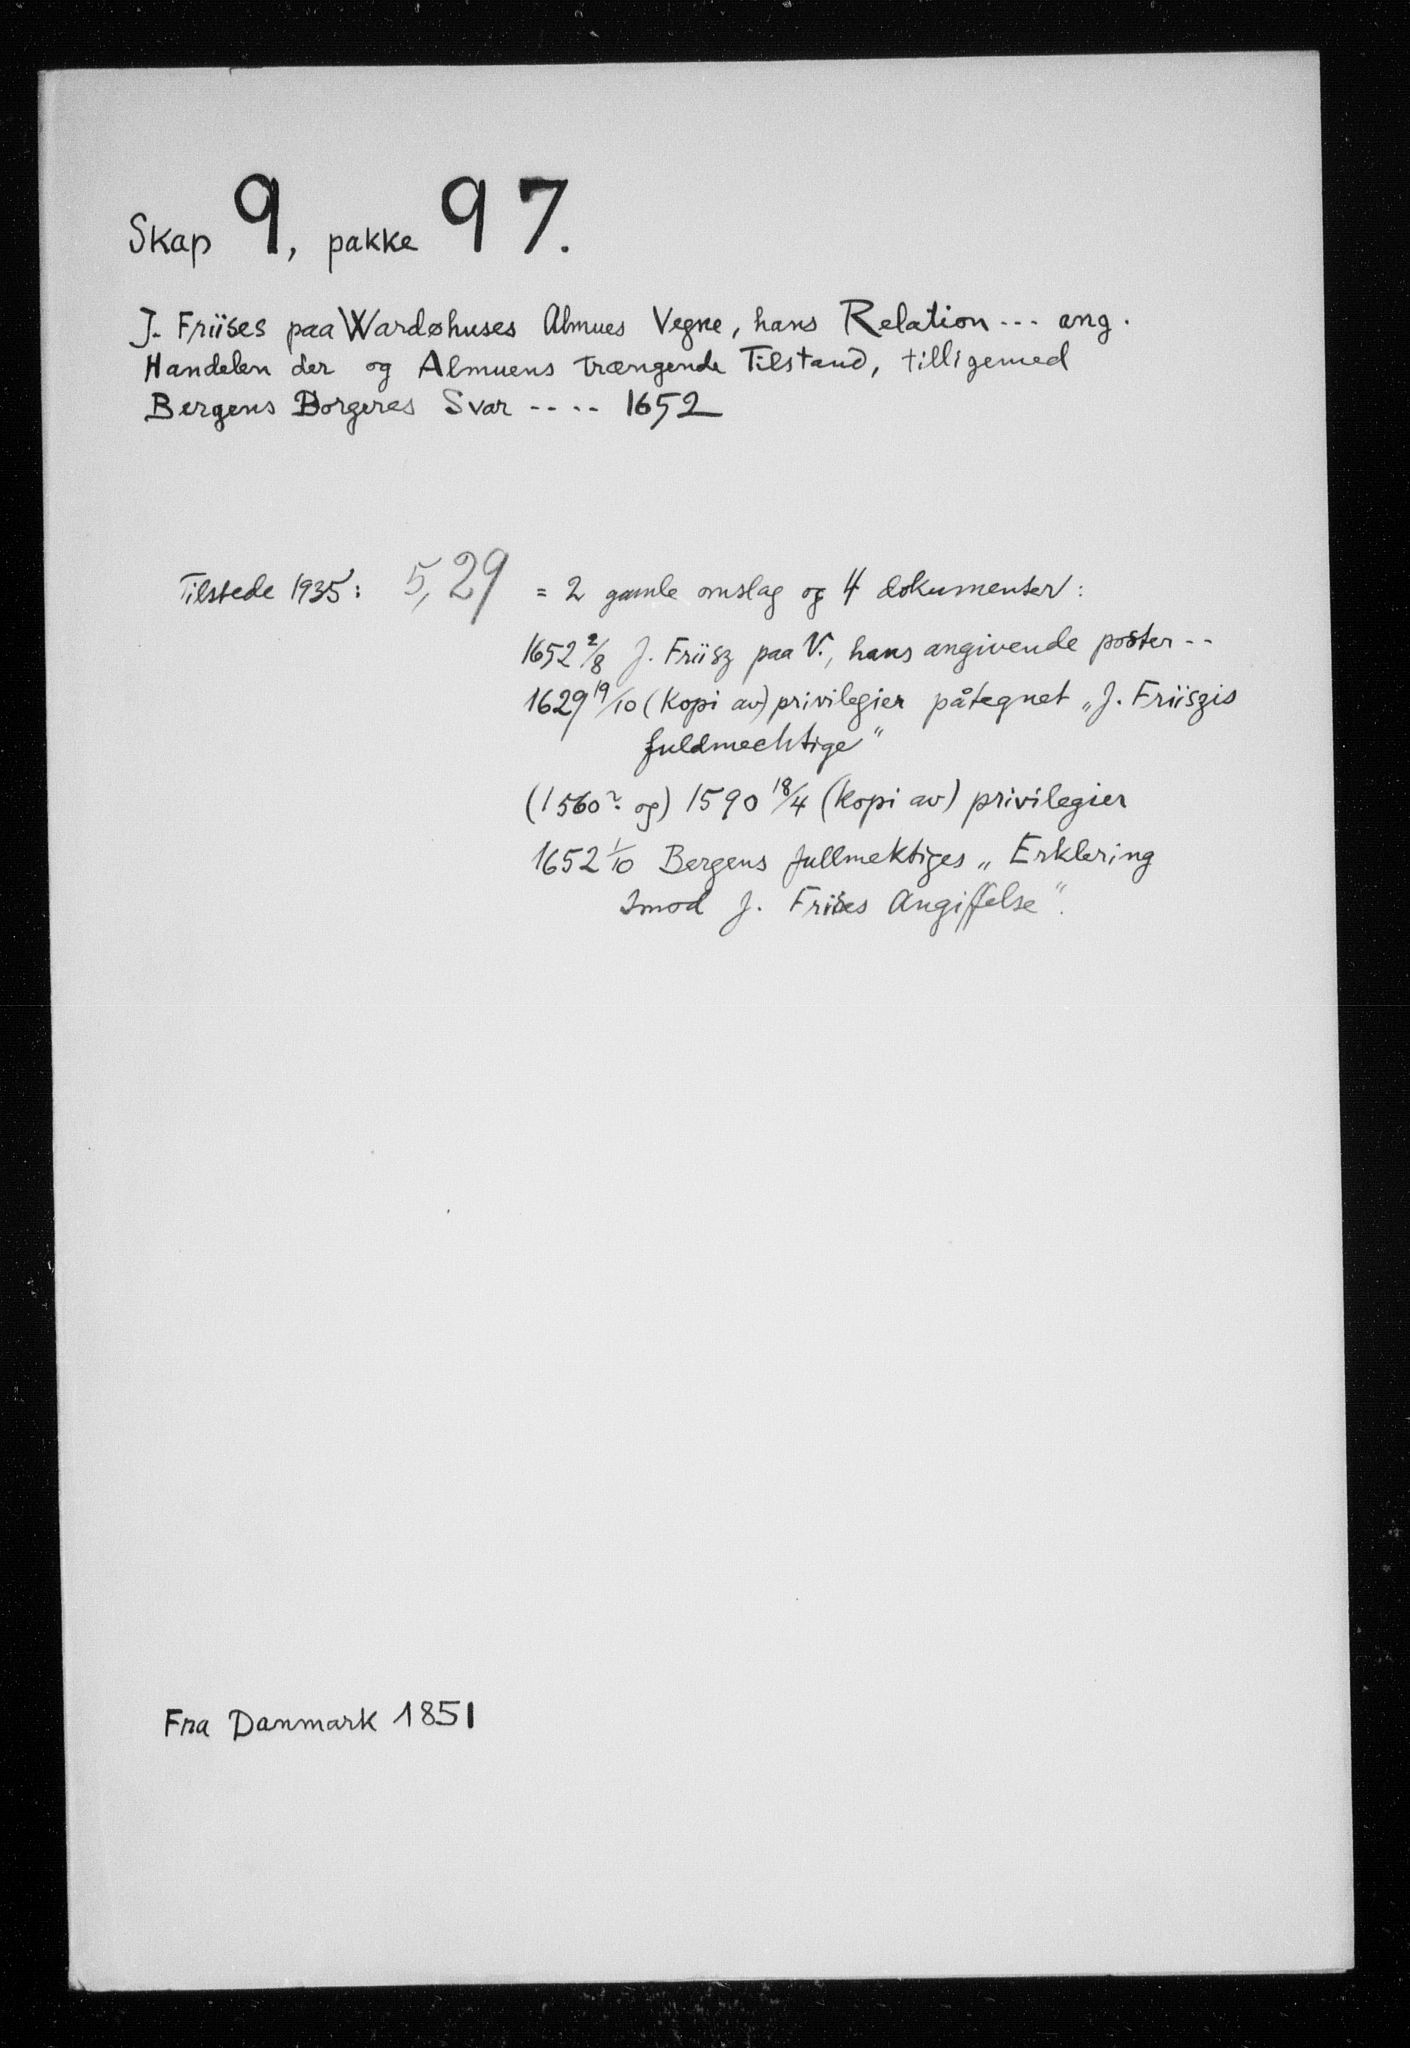 Skap 9, pakke 97.
J. Friises paa Wardøhuses Almues Vegne, hans Relation --- ang.
Handelen der og Almuens trængende Tilstand, tilligemed
Bergens Borgeres Svar ---- 1652
Tilstede 1935: 5,29 = 2 gamle omslag og 4 dokumenter:
1652 2/8 J. Friisz paa V., hans angivende poster --
1629 19/10 (kopi av) privilegier påtegnet „J. Friiszis
fuldmechtige"
(1560? og) 1590 18/4 (kopi av) privilegier
1652 1/10 Bergens fullmektiges „Erklering
Imod J. Friises Angiffelse".
Fra Danmark 1851